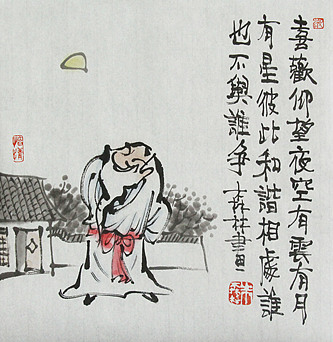 喜歡仰望夜空有雲有月
有星彼此和諧相處誰
也不與誰爭 森林畫